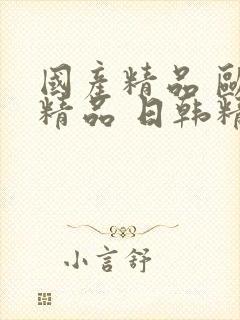 國產精品 歐
精品 日韩精
小言舒